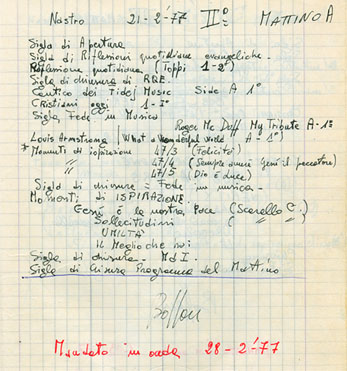 Nastro 21-2-'77 IIº MATTINO A
Sigla di Apertura
Sigla di Riflessioni quotidiane evangeliche -
Riflessione quotidiana (Toppi 1-2º)
Sigla di chiusura di RQE
Cantico dei Tidej Music Side A 1º
Cristiani oggi 1-Iº
Sigla, Fede in Musica
Roger Mc Duff My Tribute A-1º
Louis Armstrong (What a wonderful world A-1º)
* Momenti di ispirazione 47/3 (Felicità)
" 47/4 (Sempre amici Gesù il peccatore)
" 47/5 (Dio è luce)
Sigla di chiusura = Fede in musica -
Momenti di ISPIRAZIONE
Gesù è la nostra Pace (Scarello
Sollecitudini (
UMILTÀ
Il Meglio che noi
Sigla di chiusura - M.d.I.
Sigla di chiusura Programma del Mattino
Mandato in onda 28-2-'77